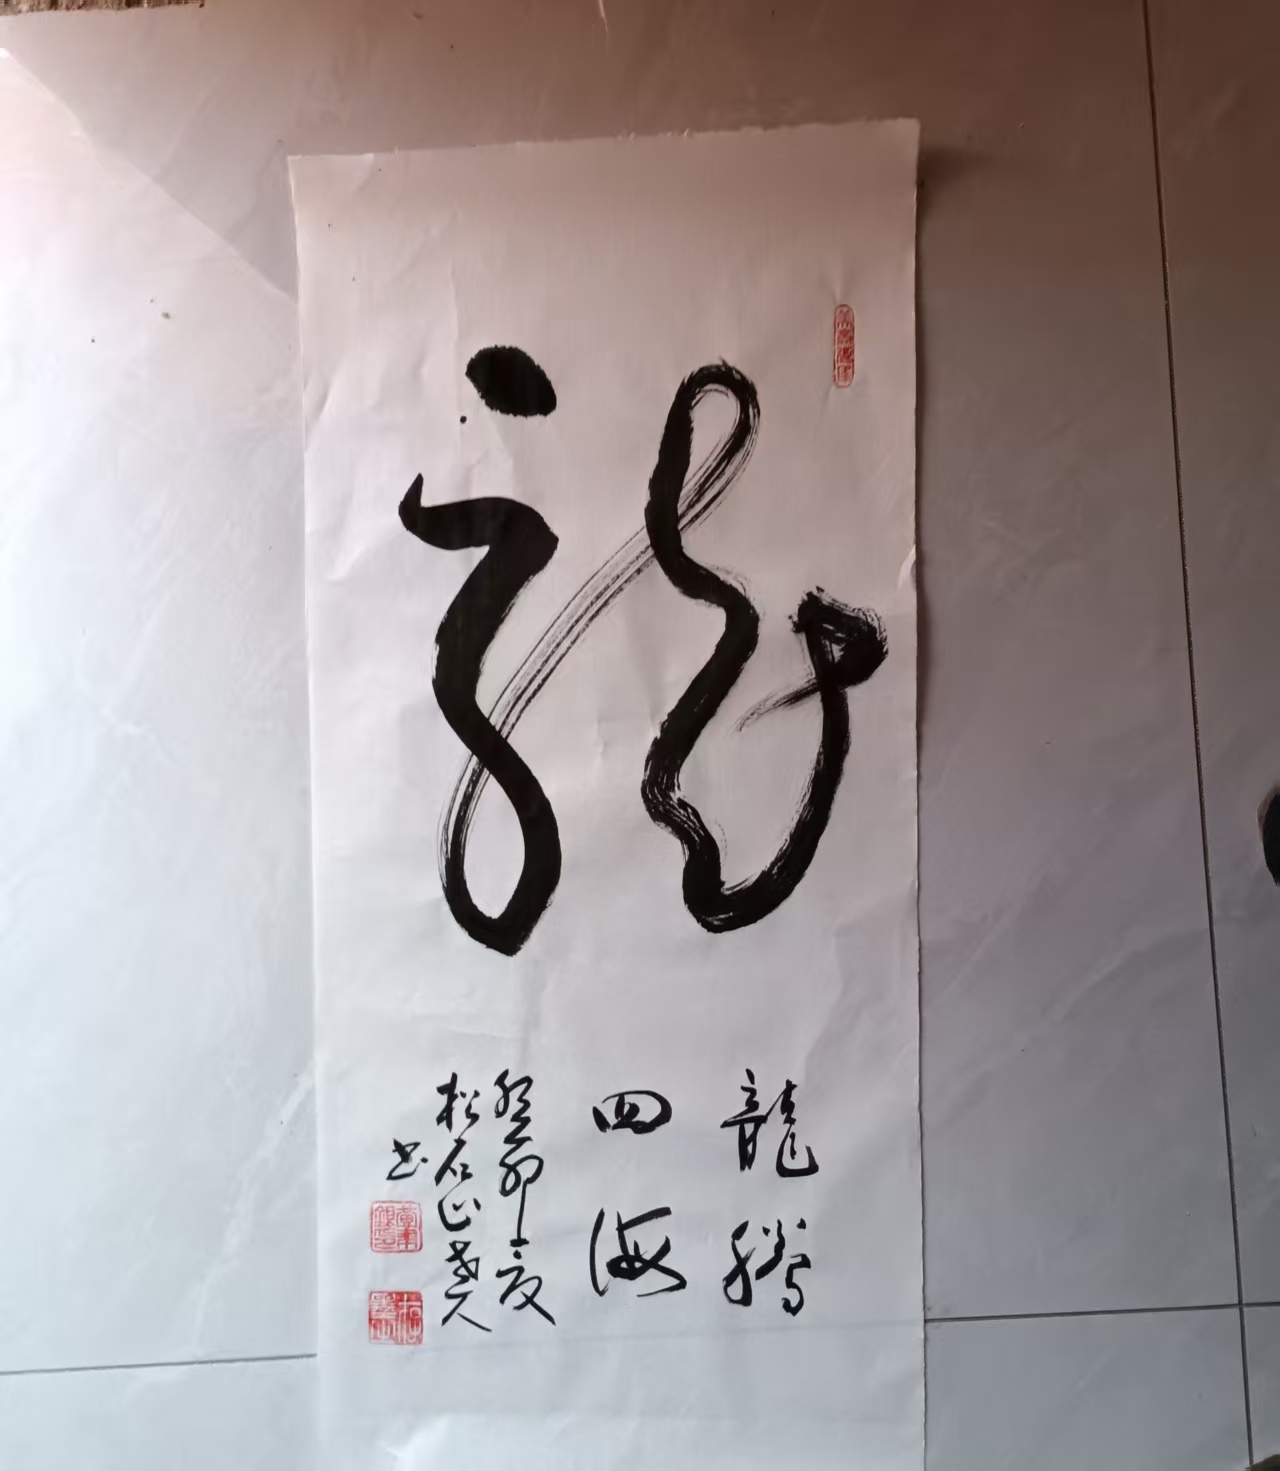 龍
龍騰
四海
癸卯夏
松石山老人
书